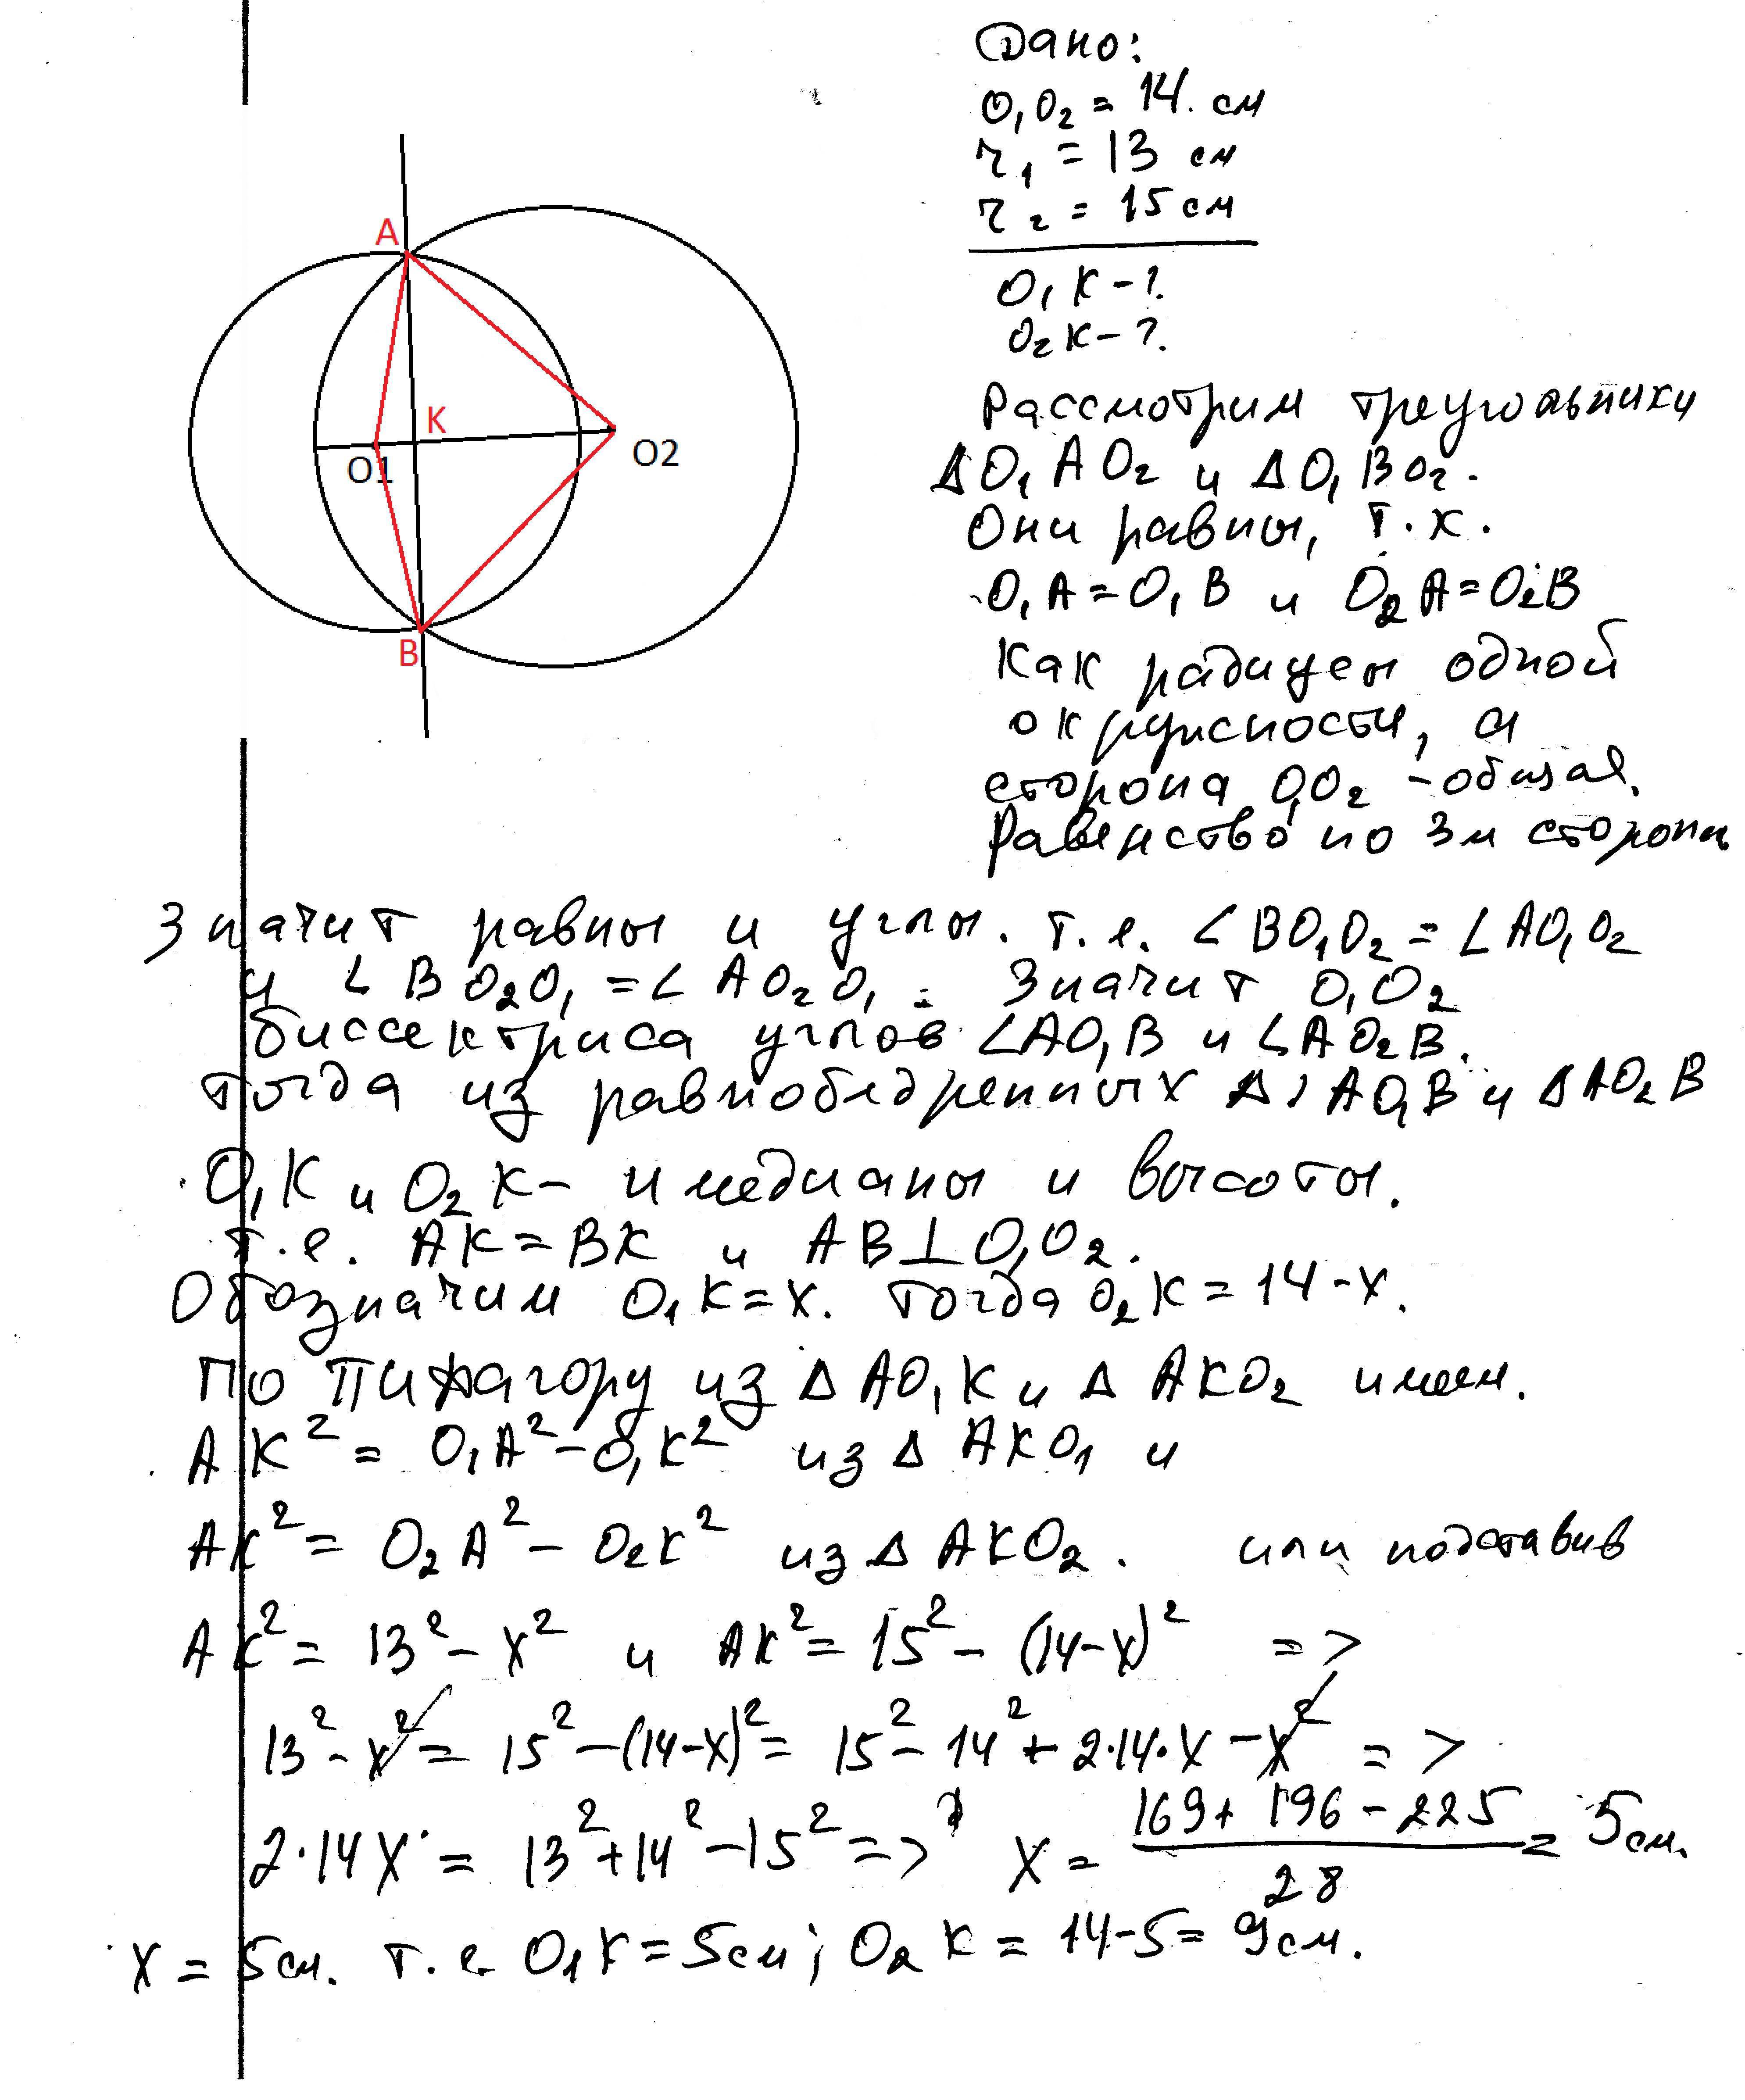 Дано:
O₁O₂ = 14. см
r₁ = 13 см
r₂ = 15 см
O₁K - ?
O₂K - ?
A
K
O1
O2
B
Рассмотрим треугольники
ΔO₁AO₂ и ΔO₁BO₂.
Они равны, т.к.
O₁A = O₁B и O₂A = O₂B
как радиусы одной
окружности, а
сторона O₁O₂ - общая.
Равенство по 3м сторонам
Значит равны и углы. т.е. ∠BO₁O₂ = ∠AO₁O₂
и ∠BO₂O₁ = ∠AO₂O₁. Значит O₁O₂
биссектриса углов ∠AO₁B и ∠AO₂B.
Тогда из равнобедренных Δ AO₁B и ΔAO₂B
O₁K и O₂K - и медианы и высоты.
т.е. AK = BK и AB ⊥ O₁O₂.
Обозначим O₁K = x. Тогда O₂K = 14 - x.
По Пифагору из Δ AO₁K и Δ AKO₂ имеем.
AK² = O₁A² - O₁K² из Δ AKO₁ и
AK² = O₂A² - O₂K² из Δ AKO₂. или подставив
AK² = 13² - x² и AK² = 15² - (14-x)² =>
13² - x² = 15² - (14-x)² = 15² - 14² + 2·14·x - x² =>
2·14x = 13² + 14² - 15² => x = (169 + 196 - 225)/28 = 5см.
x = 5см. т.е. O₁K = 5см; O₂K = 14-5 = 9см.